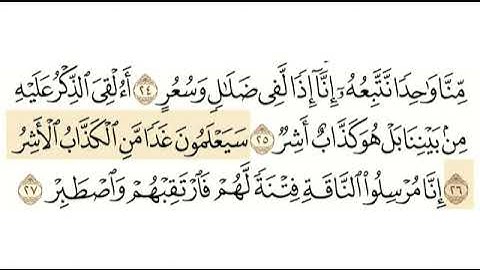 مِّنَّا وَٰحِدًا نَّتَّبِعُهُۥٓ إِنَّآ إِذًا لَّفِى ضَلَٰلٍ وَسُعُرٍ ٢٤ أَءُلْقِىَ ٱلذِّكْرُ عَلَيْهِ
مِنۢ بَيْنِنَا بَلْ هُوَ كَذَّابٌ أَشِرٌ ٢٥ سَيَعْلَمُونَ غَدًا مَّنِ ٱلْكَذَّابُ ٱلْأَشِرُ
٢٦ إِنَّا مُرْسِلُوا۟ ٱلنَّاقَةِ فِتْنَةً لَّهُمْ فَٱرْتَقِبْهُمْ وَٱصْطَبِرْ ٢٧